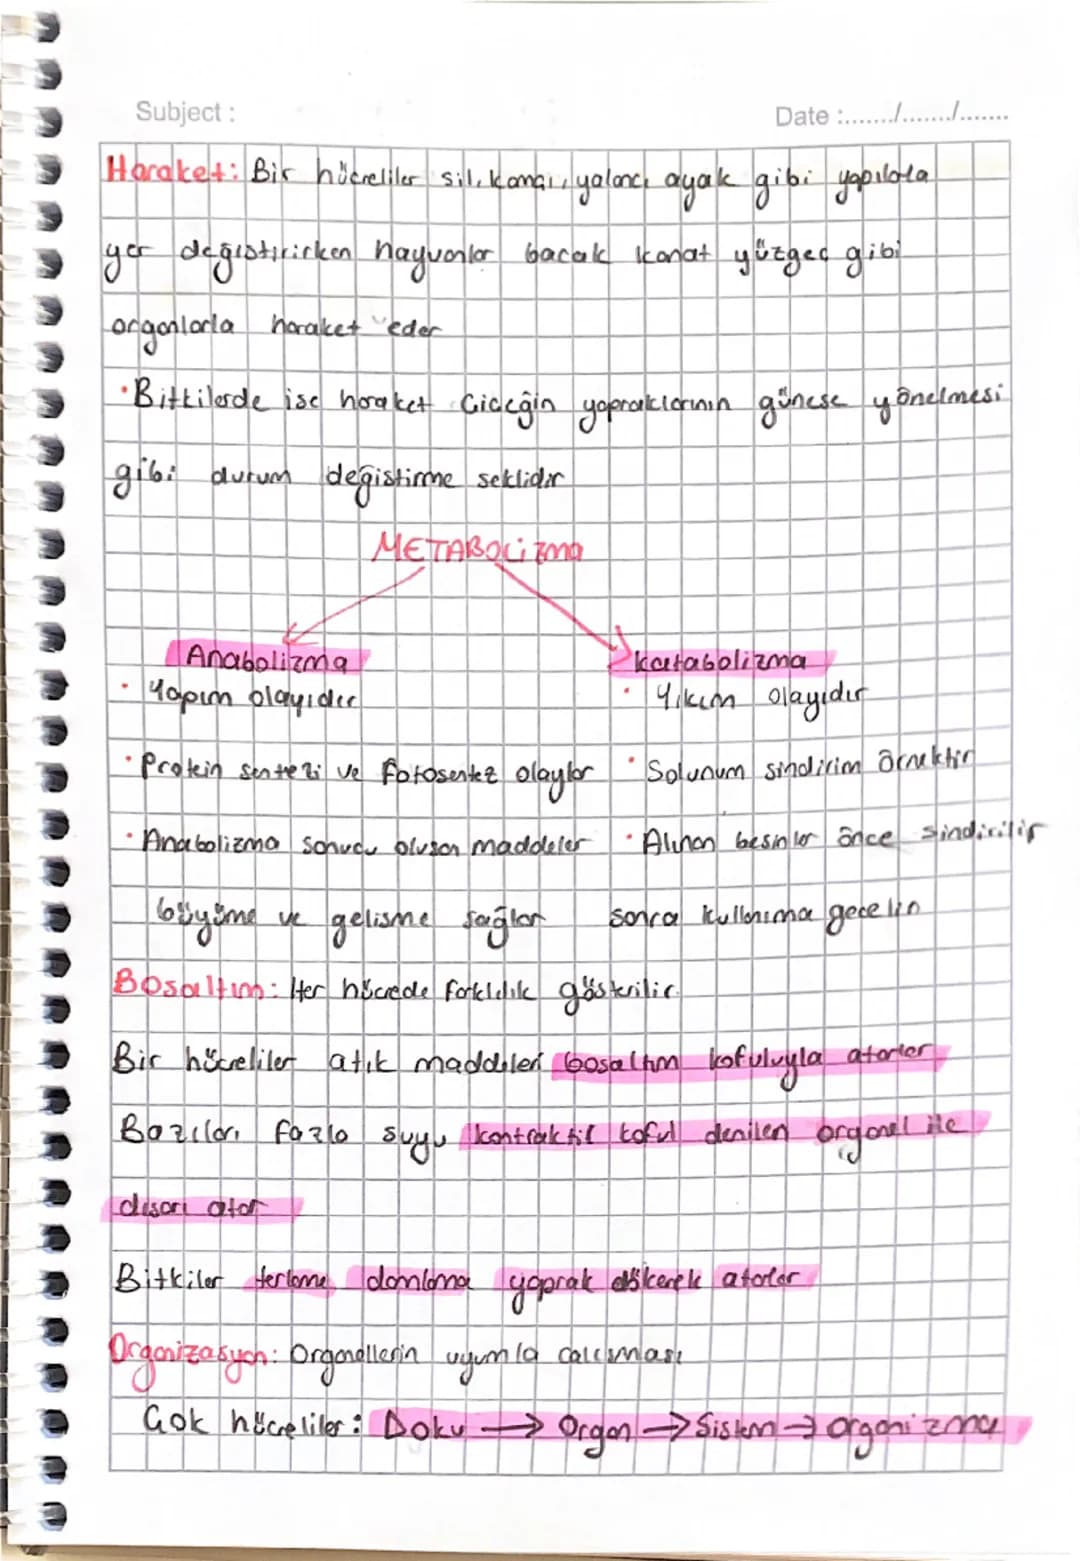 Subject :
Date :......./......./.......
Haraket: Bir hücreliler sil, kamçı, yalancı ayak gibi yapılola
yer değistiricken hayvanlar bacak kanat yüzgeç gibi
organlarla haraket eder
•Bitkilerde ise haraket Çiçeğin yapraklarının günese yönelmesi
gibi durum değistirme seklidir
METABOLiZma
Anabolizma
katabolizma
• Yapım olayıdır
• Yıkım olayıdır
• Protein sentezi ve fotosentez olaylar
• Solunum sindirim örnektir
• Anabolizma sonucu olusan maddeler
• Alınan besinler önce sindirilir
büyüme ve gelisme sağlar
sonra kullanıma gecelin
Bosaltım: Her hücrede farklılık gösterilir.
Bir hücreliler atık maddeleri bosaltım kofuluyla atarlar
Bazıları fazla suyu kontraktil koful denilen organel ile
dısarı atar
Bitkiler terleme damlama yaprak dökerek atarlar
Organizasyon: Organellerin uyumla calısması
Çok hücreliler: Doku → Organ → Sistem → organizma